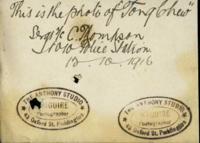 This is the photo of "Tong Chew"
Sergt C. Thompson
No 10 Police Station
12. 10. 1916
THE ANTHONY STUDIO
MAGUIRE
Photographer
48 Oxford St. Paddington
THE ANTHONY STUDIO
MAGUIRE
Photographer
48 Oxford St. Paddington